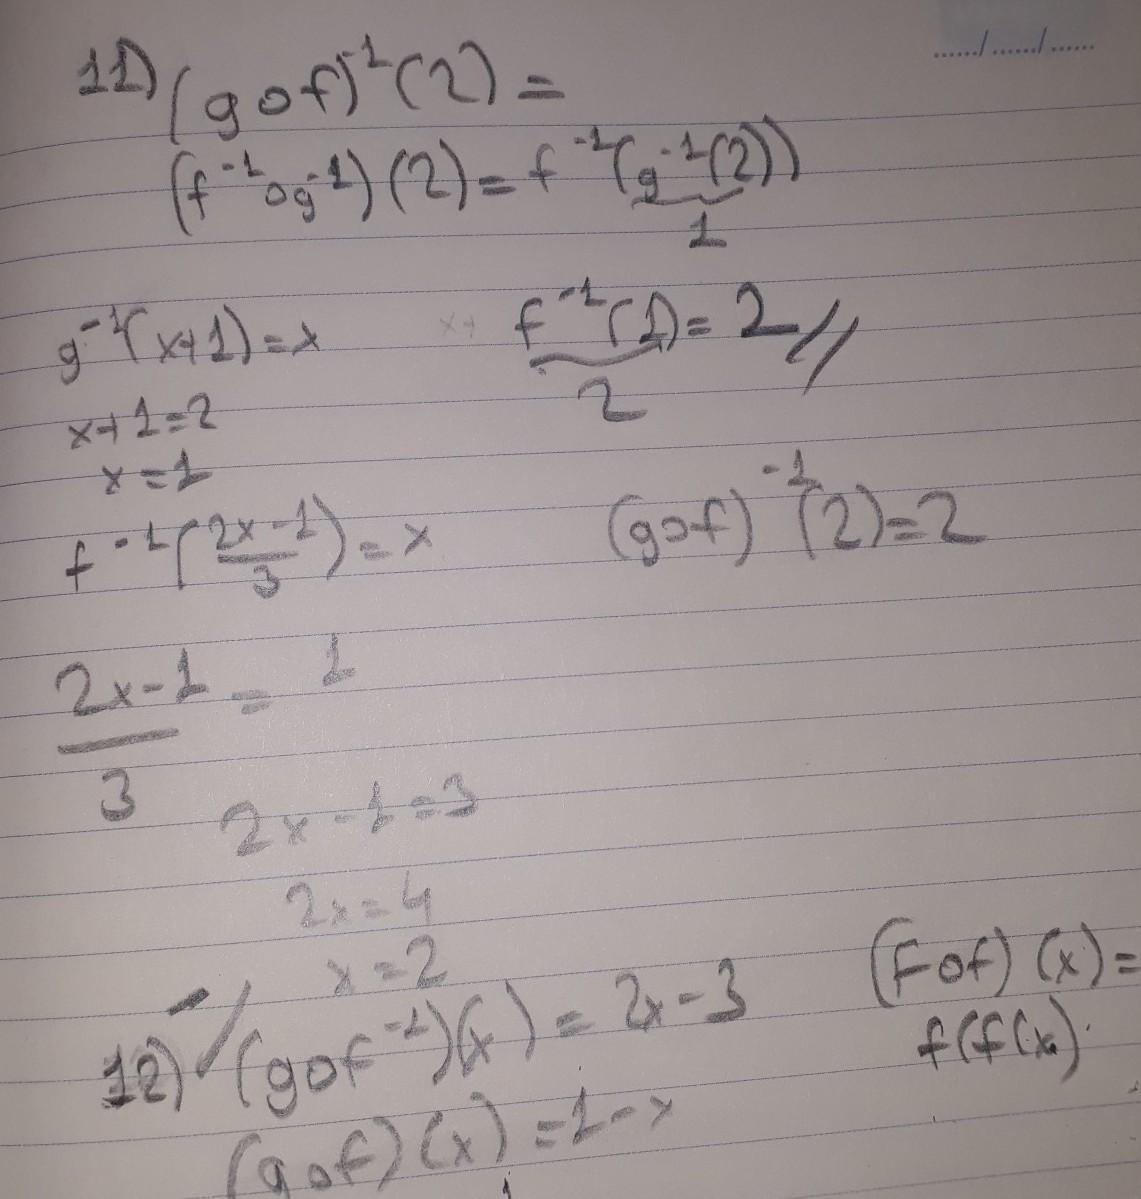 ....../....../......
11) (gof)⁻¹(2) =
(f⁻¹og⁻¹)(2) = f⁻¹(g⁻¹(2))
1
g⁻¹(x+1) = x
x+
f⁻¹(1) = 2 //
2
x+1=2
x=1
f⁻¹(2x-1/3) = x
(gof)⁻¹(2)=2
2x-1/3 = 1
2x-1=3
2x=4
x=2
12) (gof⁻¹)(x) = 2x-3
(Fof)(x) =
f(f(x)
(gof)(x) = 1-x